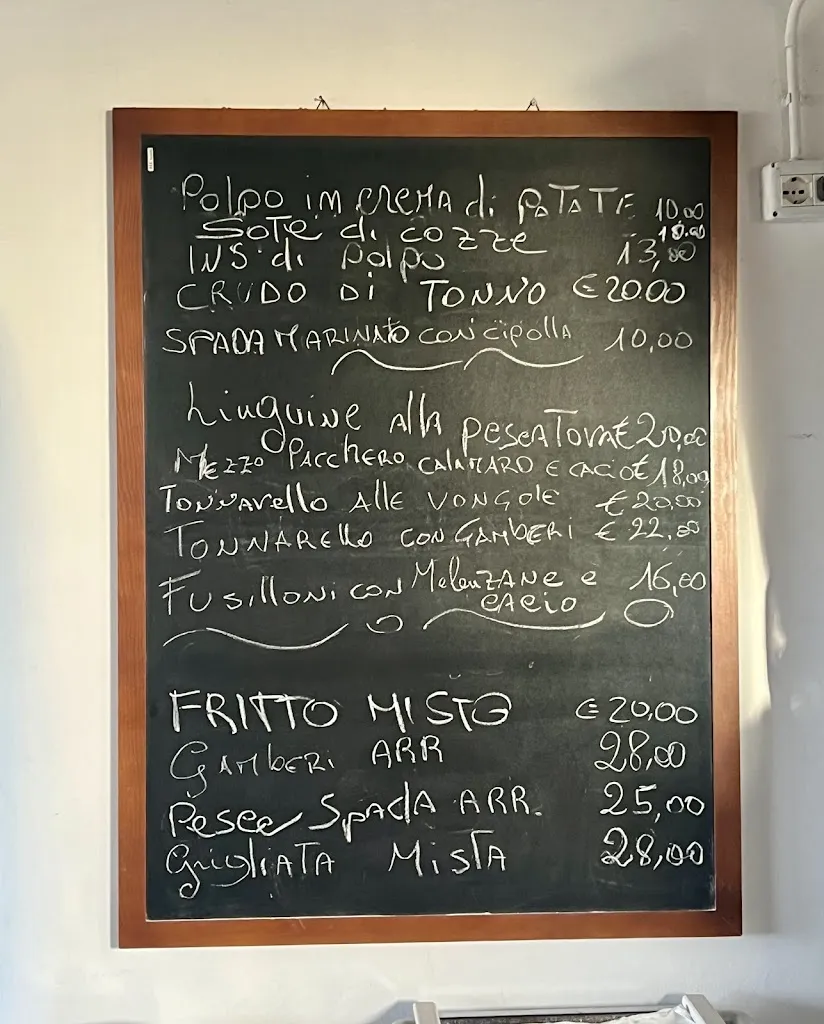 Polpo in crema di patate 10,00
Sotè di cozze 10.00
INS. di polpo 13,00
CRUDO DI TONNO € 20.00
SPADA MARINATO CON CIPOLLA 10,00
Linguine alla pescatora € 20,00
Mezzo Pacchero, calamaro e cacio € 18,00
Tonnarello alle vongole € 20,00
Tonnarello con Gamberi € 22,00
Fusilloni con Melenzane e 16,00
cacio
FRITTO MISTO € 20,00
Gamberi ARR 28,00
Pesce Spada ARR. 25,00
Grigliata Mista 28,00